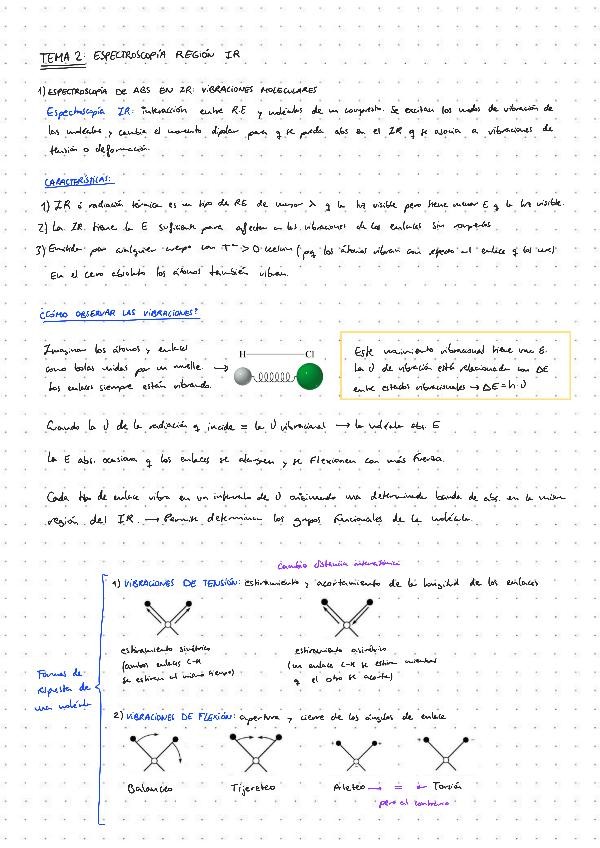 TEMA 2: ESPECTROSCOPÍA REGIÓN IR
1) ESPECTROSCOPÍA DE ABS EN IR: VIBRACIONES MOLECULARES
Espectroscopía IR: interacción entre RE y moléculas de un compuesto. Se excitan los modos de vibración de
las moléculas y cambia el momento dipolar para q se pueda abs en el IR q se asocia a vibraciones de
tensión o deformación.
CARACTERÍSTICAS:
1) IR ó radiación térmica es un tipo de RE de mayor λ q la luz visible pero tiene menor E q la luz visible.
2) La IR tiene la E suficiente para afectar a las vibraciones de los enlaces sin romperlos
3) Emitida por cualquier cuerpo con Tª > 0 kelvin (pq los átomos vibran con respecto al enlace q los une)
En el cero absoluto los átomos también vibran.
¿CÓMO OBSERVAR LAS VIBRACIONES?
Imaginar los átomos y enlaces
como bolas unidas por un muelle. →
Los enlaces siempre están vibrando.
H Cl
Este movimiento vibracional tiene una E.
La υ de vibración está relacionada con ΔE
entre estados vibracionales → ΔE = h·υ
Cuando la υ de la radiación q incide = la υ vibracional → la molécula abs. E
La E abs. ocasiona q los enlaces se alarguen y se flexionen con más fuerza.
Cada tipo de enlace vibra en un intervalo de υ originando una determinada banda de abs. en la misma
región del IR. → Permite determinar los grupos funcionales de la molécula.
Cambio distancia interatómica
1) VIBRACIONES DE TENSIÓN: estiramiento y acortamiento de la longitud de los enlaces
estiramiento simétrico
(ambos enlaces C-H
se estiran al mismo tiempo)
estiramiento asimétrico
(un enlace C-H se estira mientras
q el otro se acorta)
Formas de
respuesta de
una molécula
2) VIBRACIONES DE FLEXIÓN: apertura y cierre de los ángulos de enlace
Balanceo Tijereteo Aleteo → = ← Torsión
pero al contrario